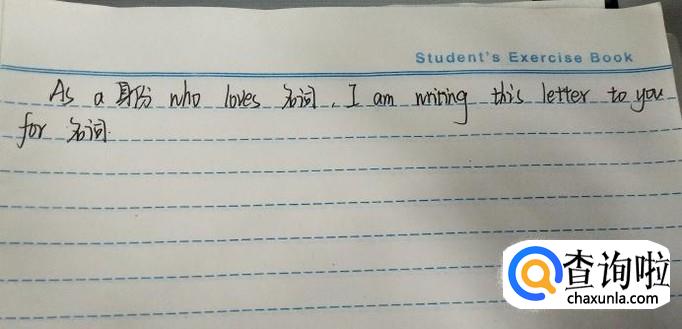 Student's Exercise Book
As a 身份 who loves 名词, I am writing this letter to you
for 名词.
查询啦
chaxunla.com